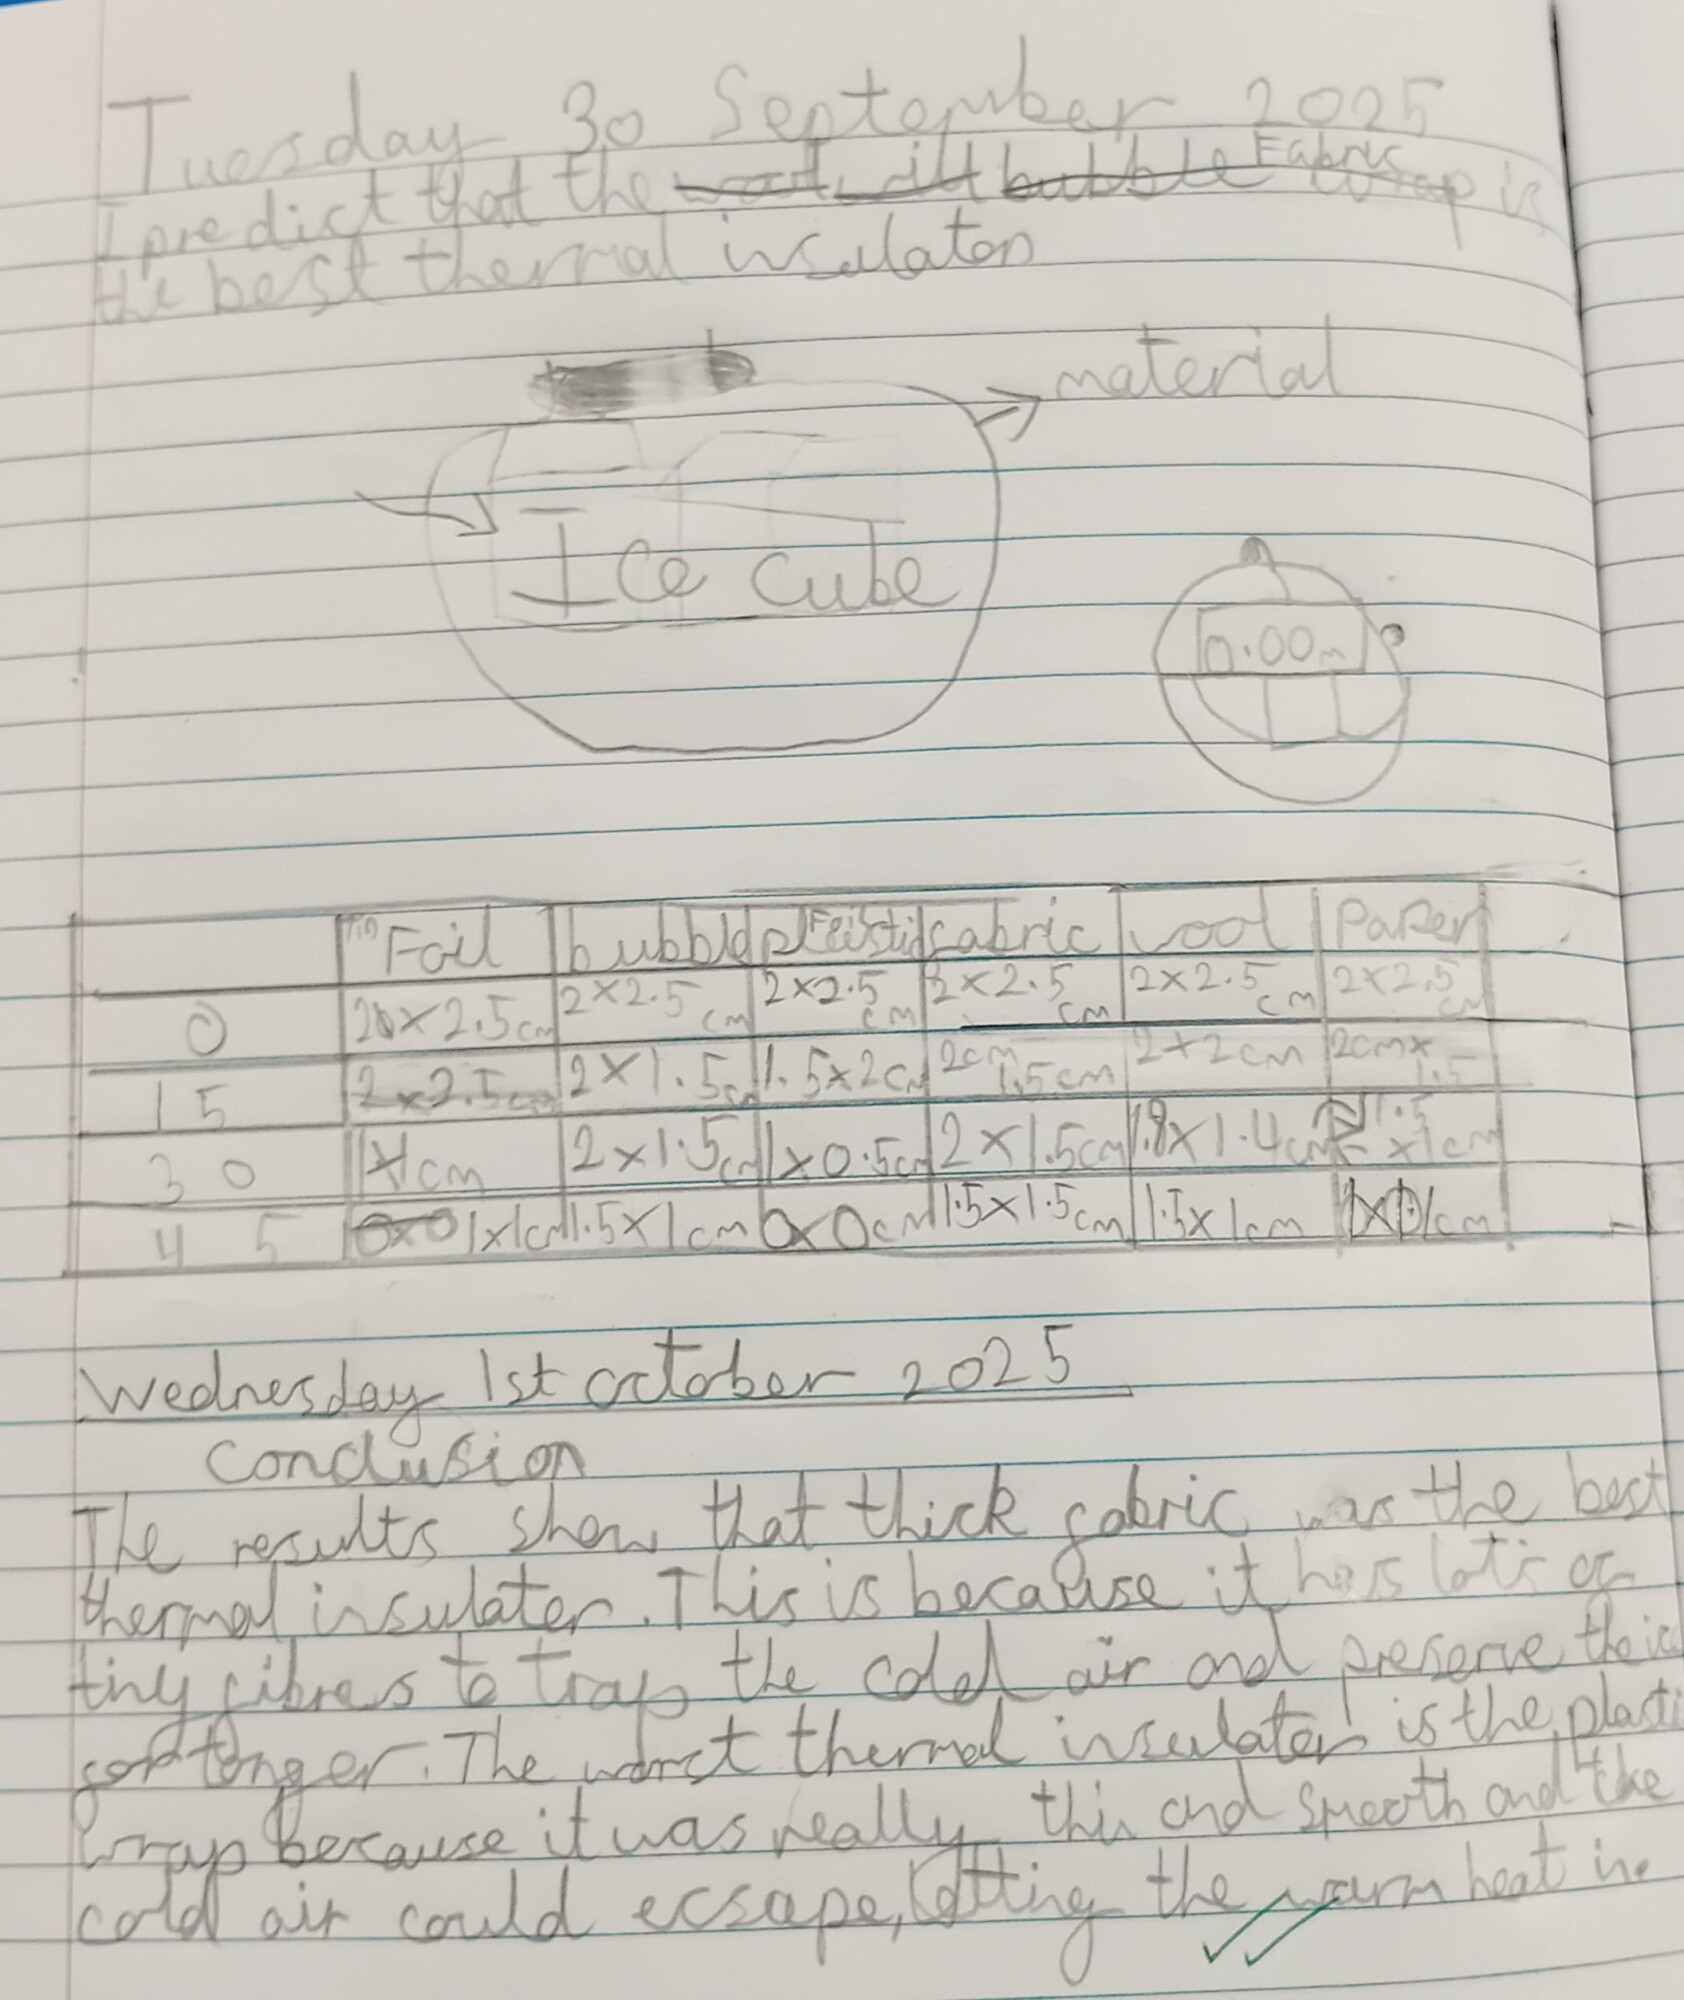 Tuesday 30 September 2025
Fabric
I predict that the wool will bubble wrap is
the best thermal insulator
material
Ice cube
0.00m
Tin Foil bubble plastic fabric wool Paper
0 2x2.5cm 2x2.5cm 2x2.5cm 2x2.5cm 2x2.5cm 2x2.5cm
15 2x2.5cm 2x1.5cm 1.5x2cm 2cm 1.5cm 2x2cm 2cmx1.5
30 1x1cm 2x1.5cm 1x0.5cm 2x1.5cm 1.8x1.4cm 1.5x1cm
45 0x0 1x1cm 1.5x1cm 0x0cm 1.5x1.5cm 1.5x1cm 1x1cm
Wednesday 1st october 2025
Conclusion
The results show that thick fabric was the best
thermal insulater. This is because it has lots of
tiny fibres to trap the cold air and preserve the ice
for longer. The worst thermal insulater is the plasti
wrap because it was really thin and smooth and the
cold air could ecsape, letting the warm heat in.